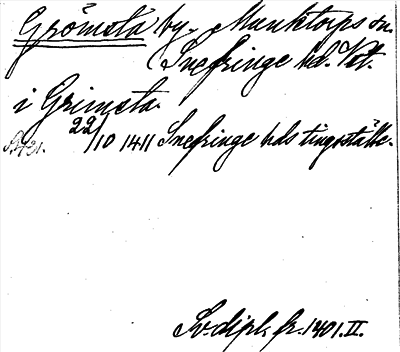 Grömsta by. Munktorps sn.
(Snefringe hd. Vstl.
i Grimsta.
S. 421. 22/10 1411 Snefringe hds tingsställe.
Sv. dipl. fr. 1401. II.